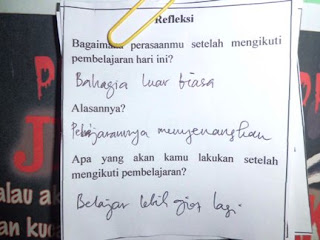 Refleksi
Bagaimana perasaanmu setelah mengikuti
pembelajaran hari ini?
Bahagia luar biasa
Alasannya?
Pelajarannya menyenangkan
Apa yang akan kamu lakukan setelah
mengikuti pembelajaran?
Belajar lebih giat lagi.